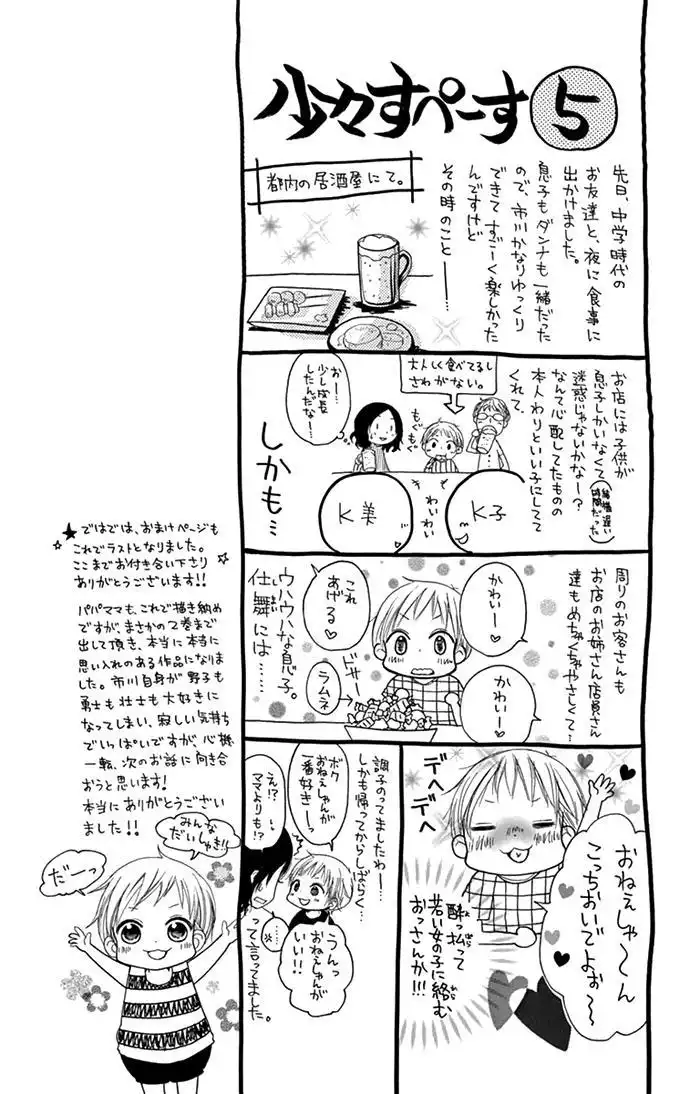 少々すぺーす⑤
先日、中学時代の
お友達と、夜に食事に
出かけました。
息子もダンナも一緒だった
ので、市川かなりゆっくり
できてすごーく楽しかった
んですけど
その時のこと——…
都内の居酒屋にて。
お店には子供が
息子しかいなくて
(結構遅い
時間だった)
迷惑じゃないかなー?
なんて心配してたものの
本人わりといい子にしてて
くれて、
大人しく食べてるし
さわがない。
おー…
少し成長
したんだなー…
もぐもぐ
K子
わいわい
K美
しかも…
周りのお客さんも
お店のお姉さん店員さん
達もめちゃくちゃやさしくて…
かわいー♡
かわいー♡
これ
あげる♡
ドサー
ラムネ
ウハウハな息子。
仕舞には……
しまい
デヘデヘ
おねえしゃ〜ん
こっちおいでよぉ〜
酔っ払って
よぱら
若い女の子に絡む
から
おっさんか!!!
調子のってましたわー…
しかも帰ってからしばらく…
ボク
おねえしゃんが
一番好きーっ
え!?
ママよりも!?
うんっ
おねえしゃんが
いい!!
って言ってました。
★ではでは、おまけページも
これでラストとなりました。
ここまでお付き合い下さり
ありがとうございます!!
パパママも、これで描き納め
ですが、まさかの2巻まで
出して頂き、本当に本当に
思い入れのある作品になりま
した。市川自身が野子も
勇士も壮士も大好きに
なってしまい、寂しい気持ち
でいっぱいですが、心機
一転、次のお話に向き合
おうと思います!
本当にありがとうござい
ました!!
みんな
だいしゅき!!
だーっ